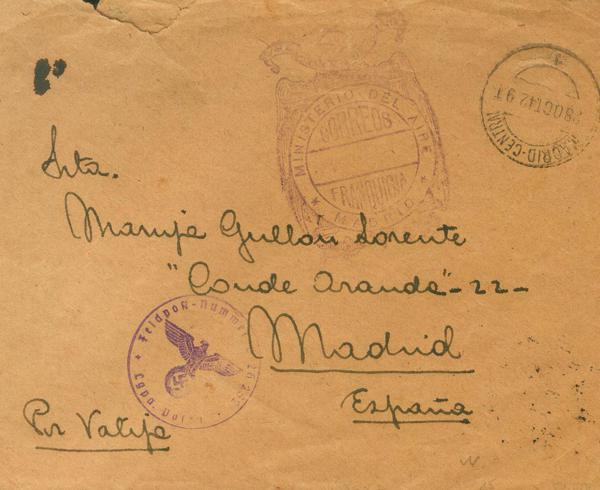 MINISTERIO DEL AIRE
CORREOS
FRANQUICIA
MADRID
MADRID-CENTRAL
28 OCT 42 9T
Srta.
Maruja Gullon Lorente
"Conde Aranda"-22-
Madrid
España
Por Valija
Feldpost-Nummer